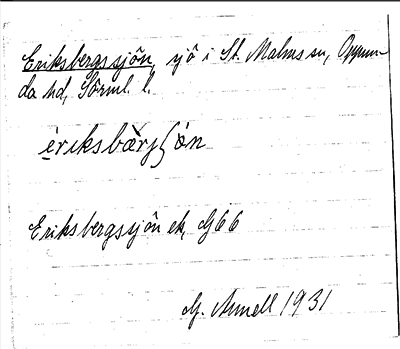 Eriksbergssjön, sjö i St. Malms sn, Oppun-
da hd, Sörml. l.
Eriksbergssjön ek. G 66
G. Annell 1931